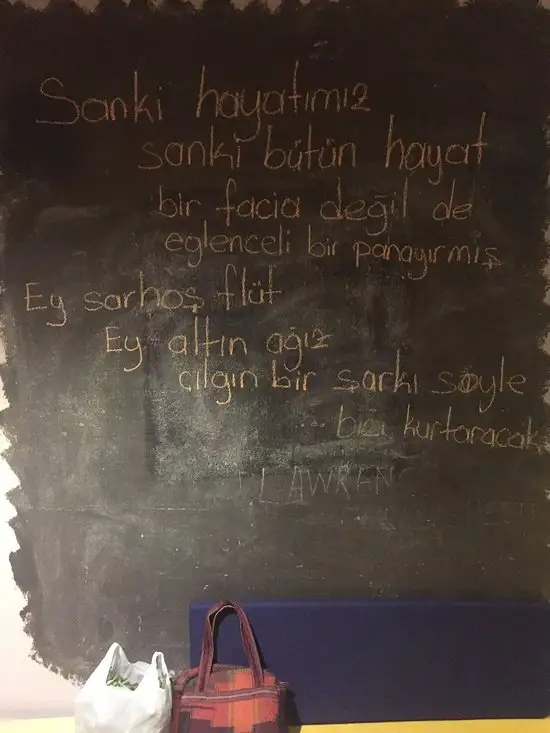 Sanki hayatımız
sanki bütün hayat
bir facia değil de
eglenceli bir panayırmış
Ey sarhoş flüt
Ey altın ağız
çılgın bir şarkı söyle
bizi kurtaracak
LAWREN